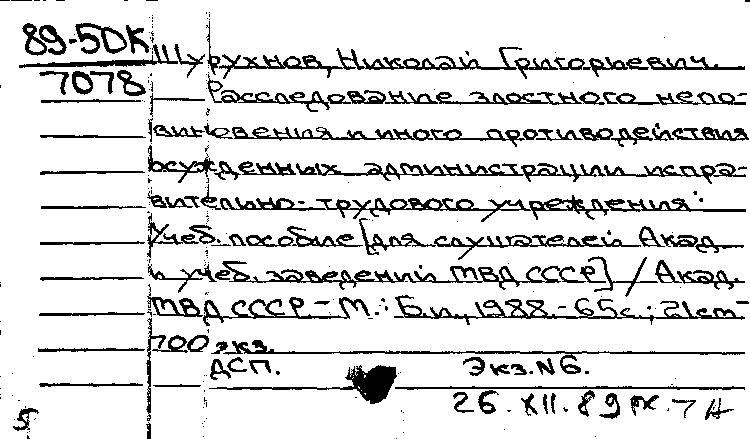 89-5DK
7078
Шурухнов, Николай Григорьевич.
Расследование злостного непо-
виновения и иного противодействия
осужденных администрации испра-
вительно-трудового учреждения:
Учеб. пособие [для слушателей Акад.
и учеб. заведений МВД СССР] / Акад.
МВД СССР - М.: Б.и., 1988.-65с.; 21см-
700 экз.
ДСП. Экз.N6.
26.XII.89
5